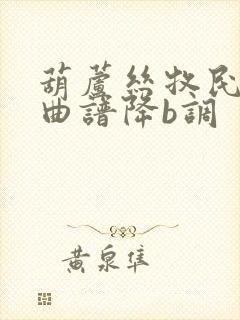 葫蘆絲牧民
曲譜降b調
黃泉隼